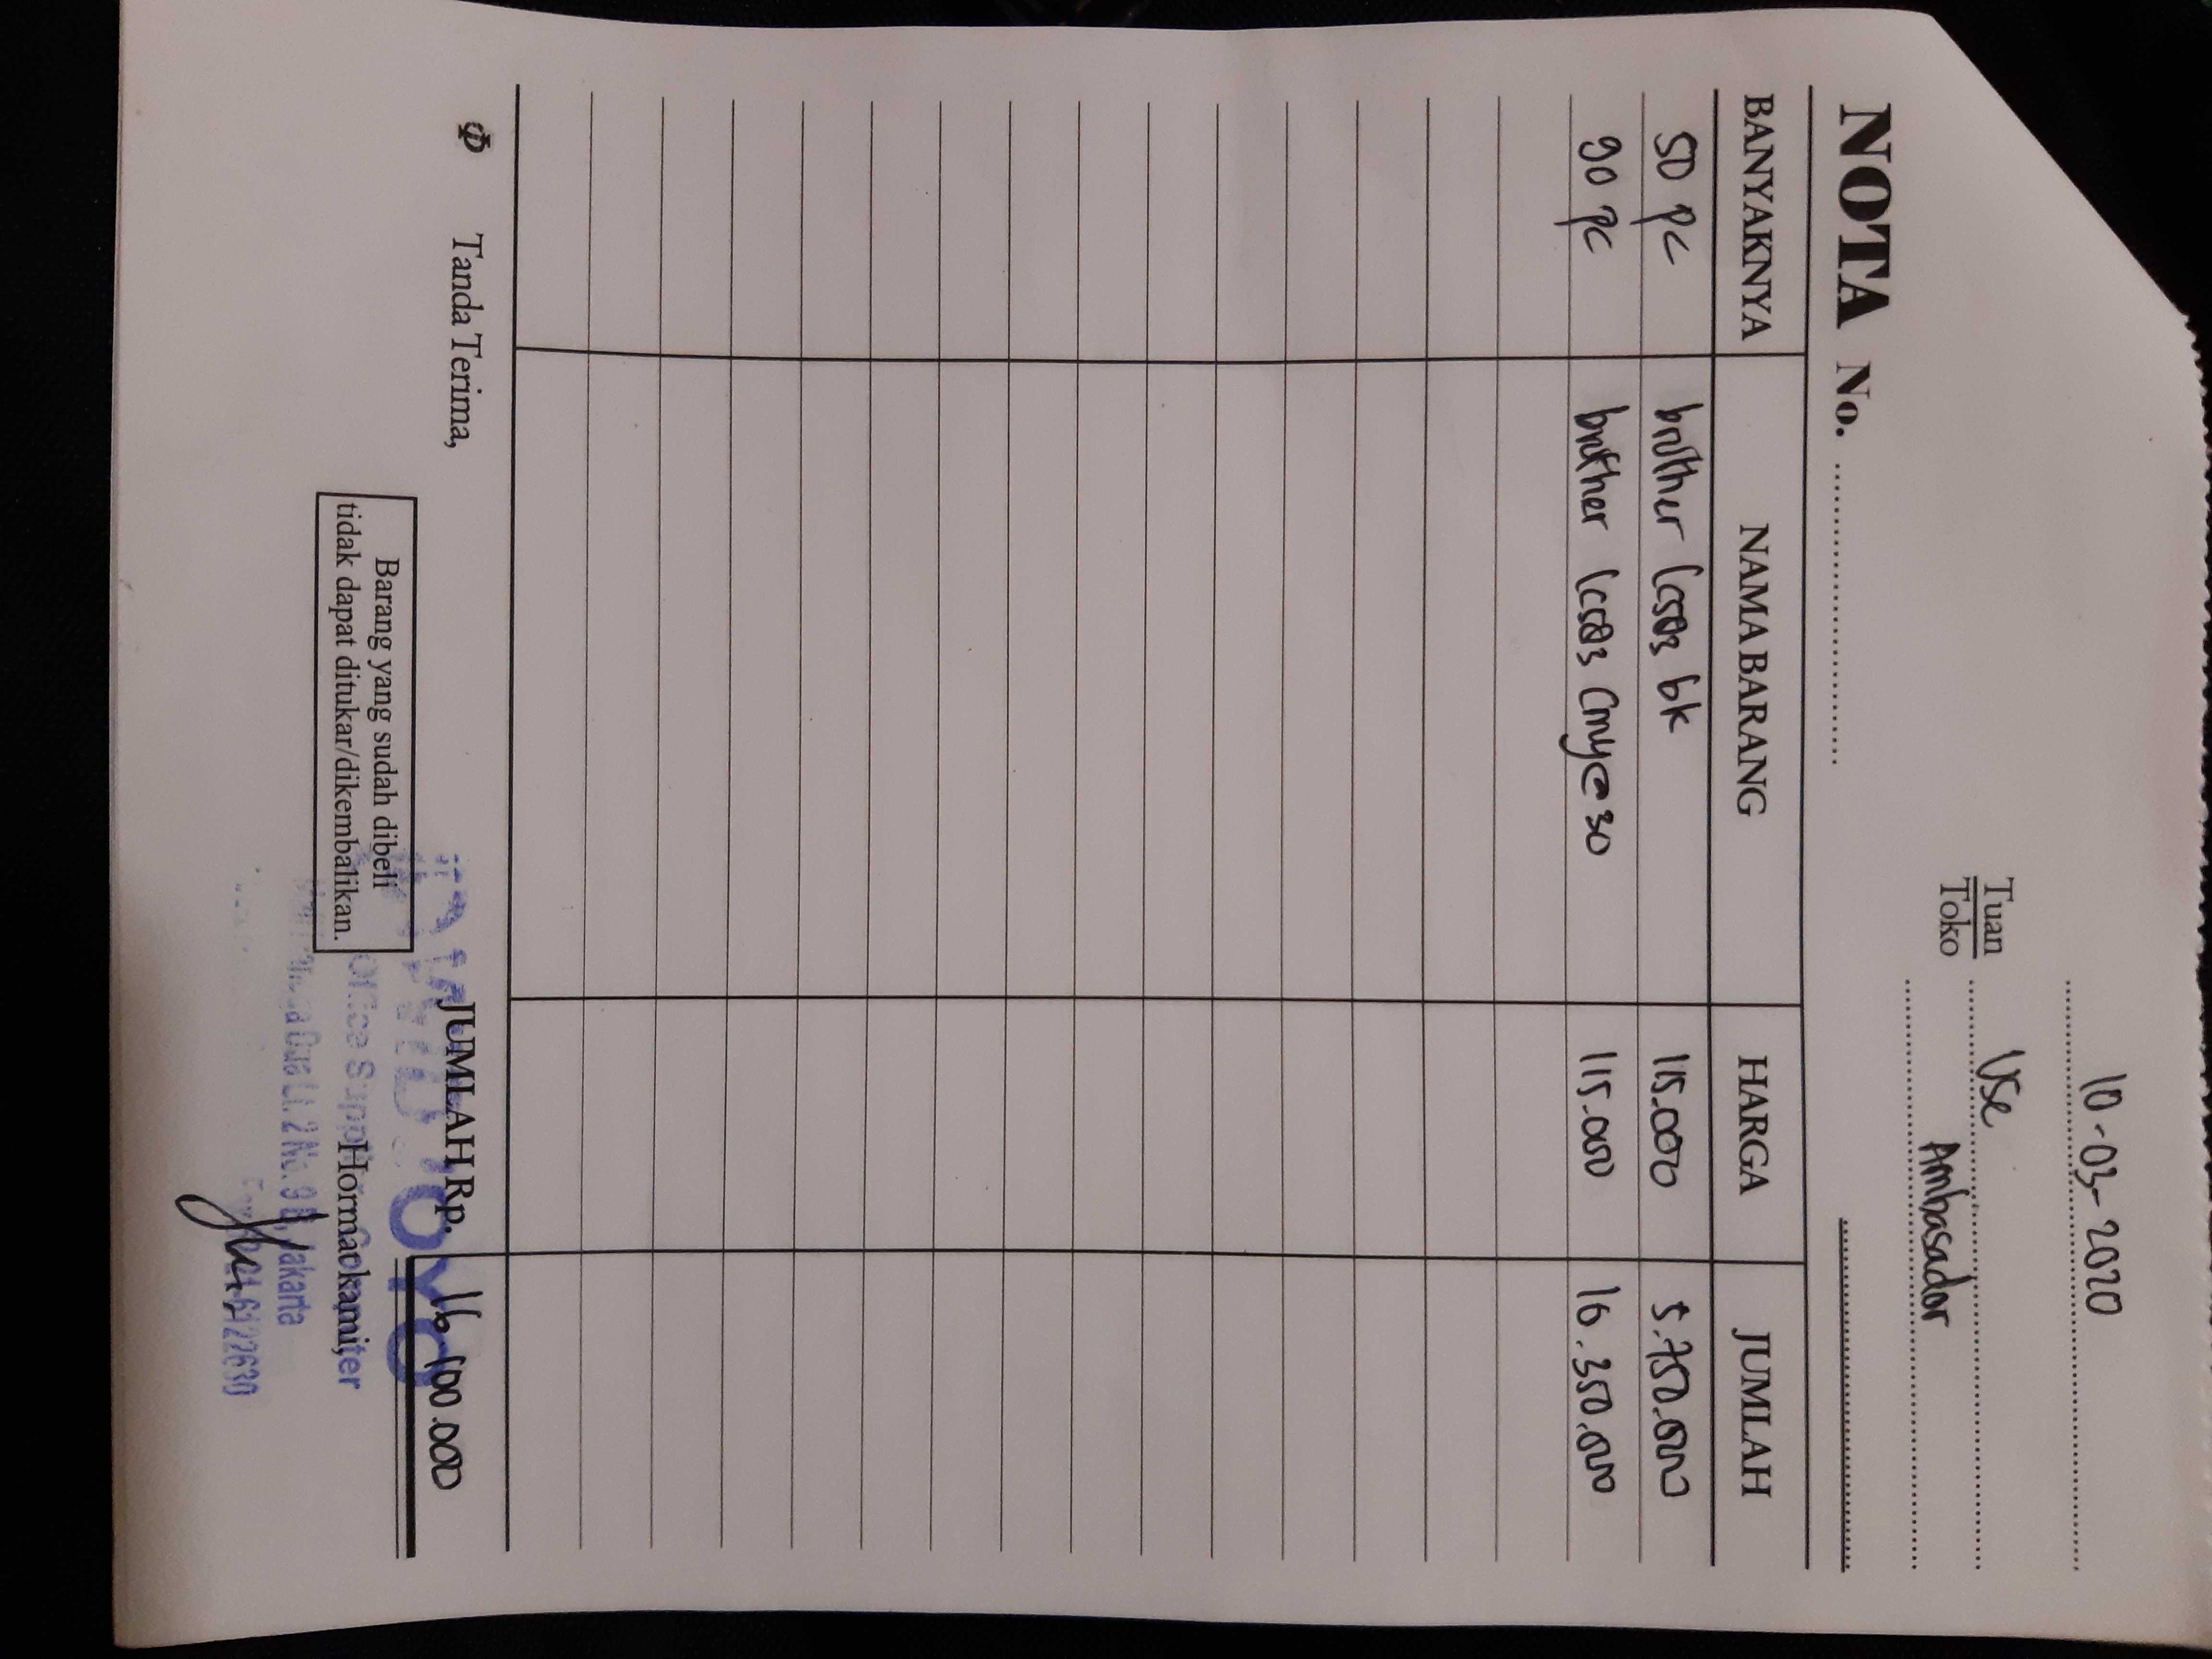 10-03-2020
Tuan
Toko
Use
Ambasador
NOTA No.
BANYAKNYA NAMA BARANG HARGA JUMLAH
50 pc brother lc583 bk 115.000 5.750.000
90 pc brother lc583 Cmy@30 115.000 10.350.000
JUMLAH Rp. 16.100.000
Tanda Terima,
Barang yang sudah dibeli
tidak dapat ditukar/dikembalikan.
Hormat kami,
Lt. 2 No. 9 B, Jakarta
6122630